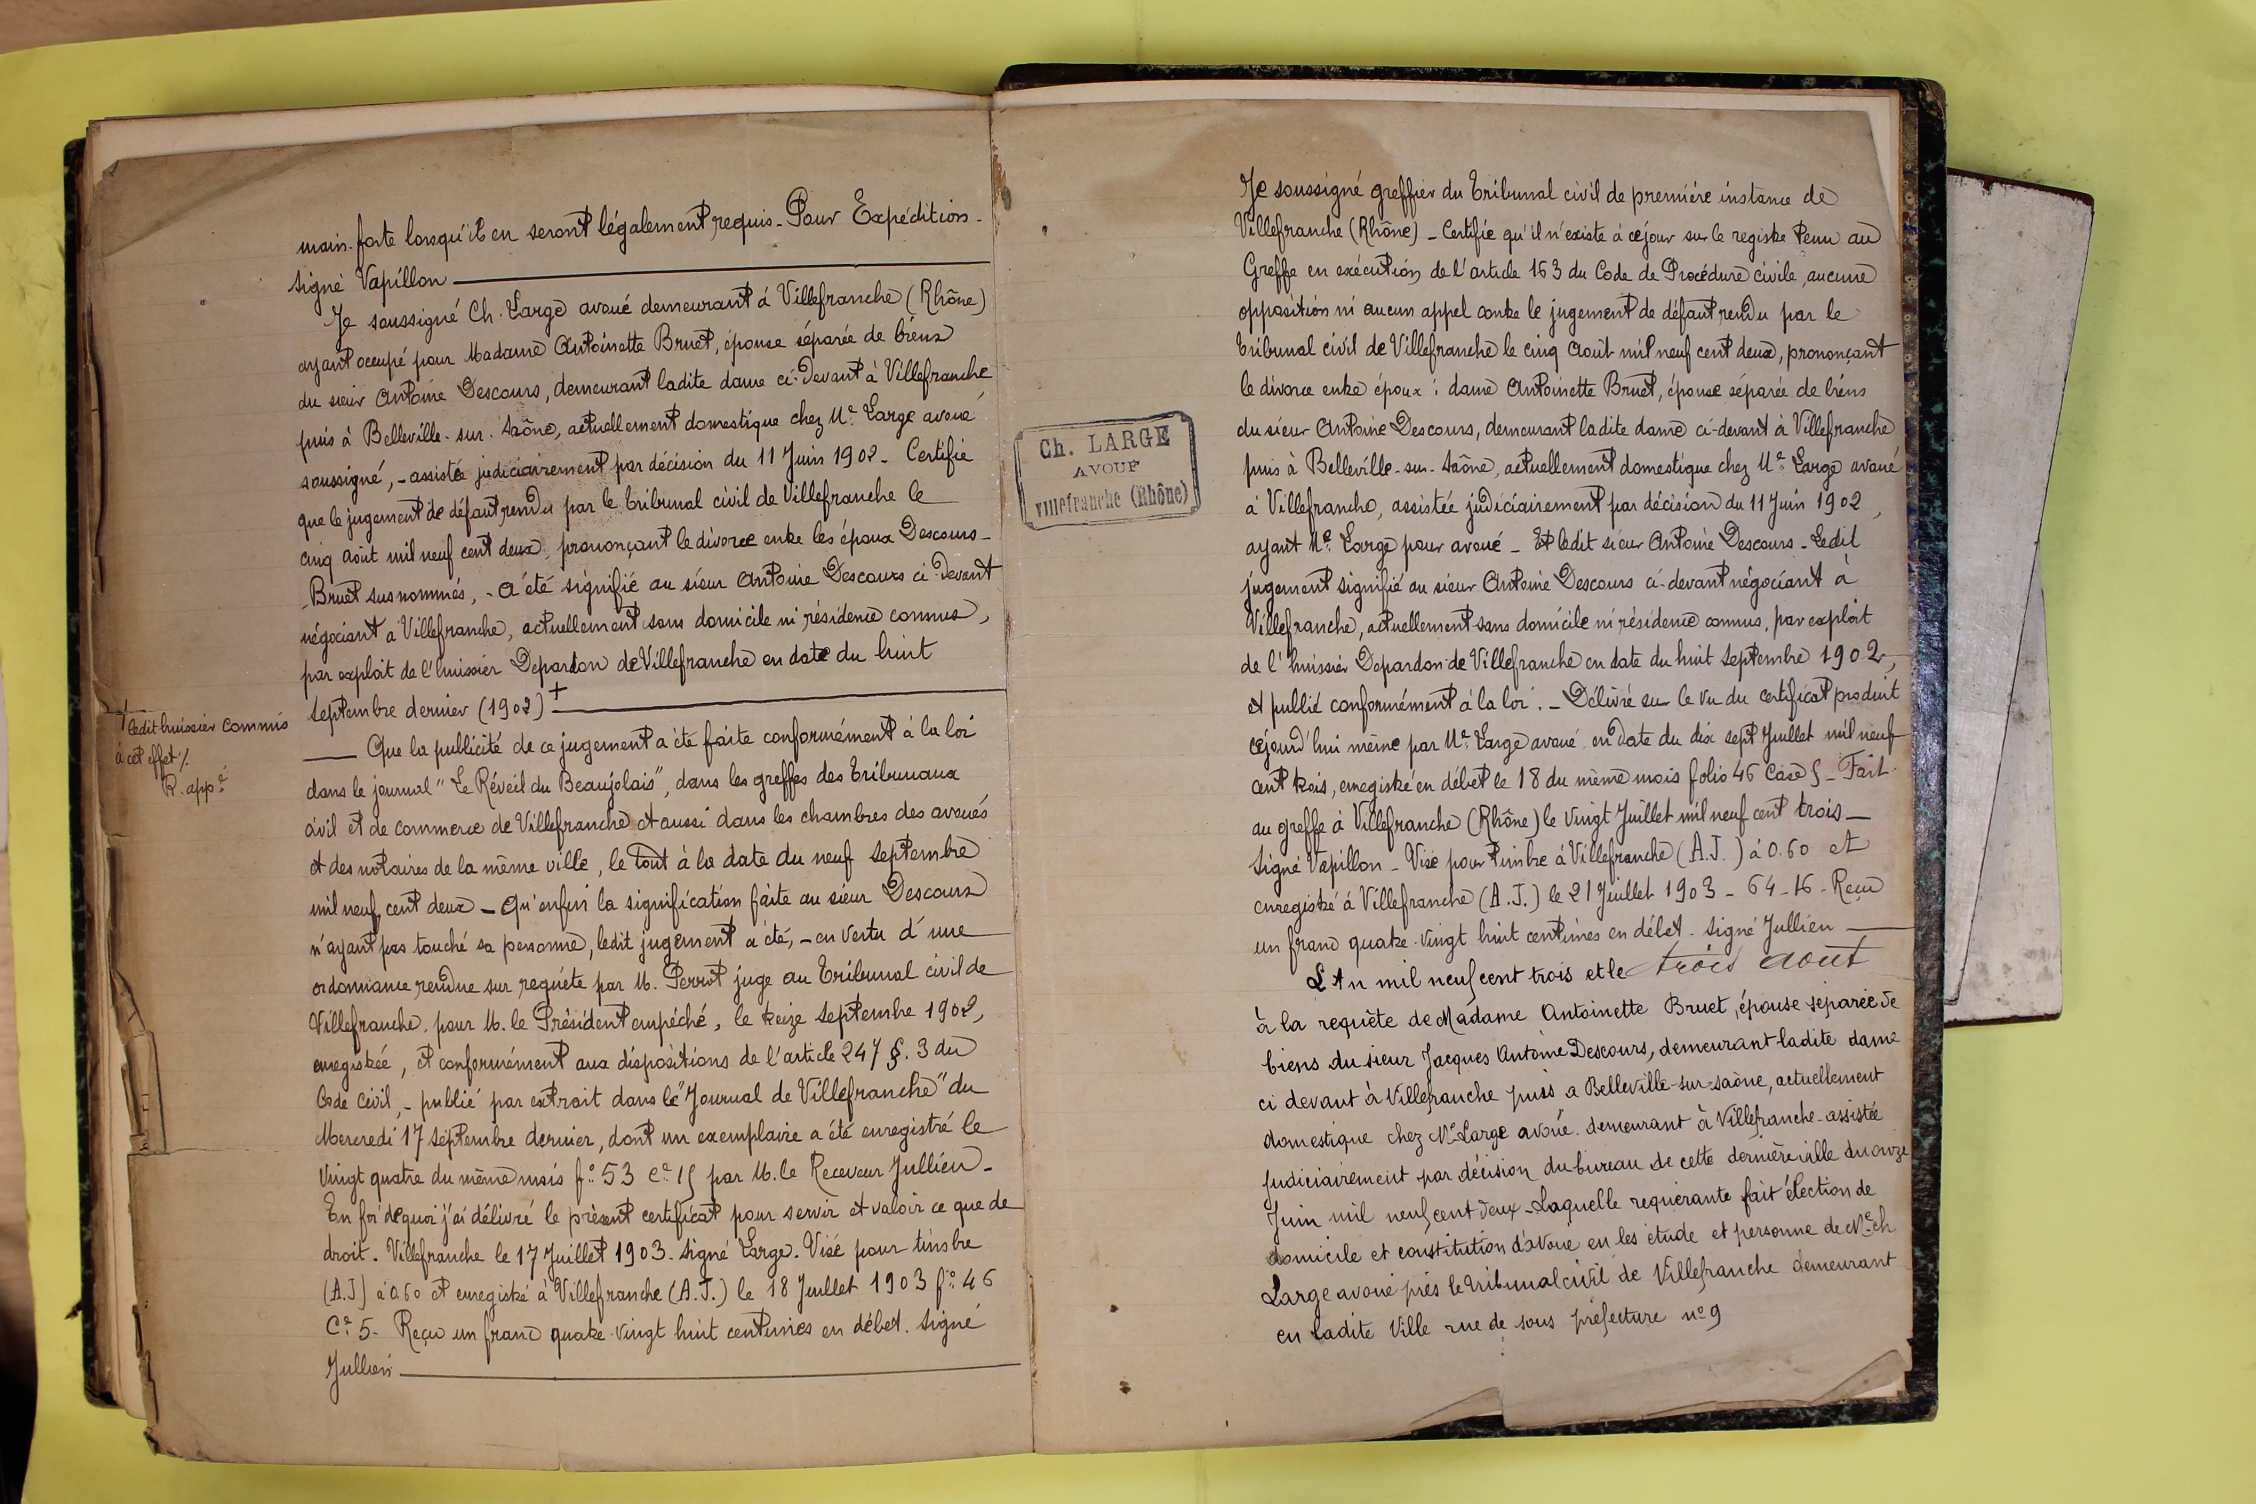 main-forte lorsqu'il en seront légalement requis - Pour Expédition -
Signé Vapillon
Je soussigné Ch. Large avoué demeurant à Villefranche (Rhône)
ayant occupé pour Madame Antoinette Bruet, épouse séparée de biens
du sieur Antoine Descours, demeurant ladite dame ci-devant à Villefranche
puis à Belleville-sur-Saône, actuellement domestique chez Me Large avoué
soussigné, - assistée judiciairement par décision du 11 Juin 1902 - Certifie
que le jugement de défaut rendu par le tribunal civil de Villefranche le
cinq août mil neuf cent deux, prononçant le divorce entre les époux Descours-
-Bruet susnommés, - a été signifié au sieur Antoine Descours ci-devant
négociant à Villefranche, actuellement sans domicile ni résidence connus,
par exploit de l'huissier Depardon de Villefranche en date du huit
Septembre dernier (1902) +
+ ledit huissier commis
à cet effet /.
R. appé
Que la publicité de ce jugement a été faite conformément à la loi
dans le journal "Le Réveil du Beaujolais", dans les greffes des tribunaux
civil et de commerce de Villefranche et aussi dans les chambres des avoués
et des notaires de la même ville, le tout à la date du neuf Septembre
mil neuf cent deux - Qu'enfin la signification faite au sieur Descours
n'ayant pas touché sa personne, ledit jugement a été, - en vertu d'une
ordonnance rendue sur requête par M. Perrot juge au tribunal civil de
Villefranche, pour M. le Président empêché, le treize Septembre 1902,
enregistrée, et conformément aux dispositions de l'article 247 §. 3 du
Code Civil, - publié par extrait dans le "Journal de Villefranche" du
Mercredi 17 Septembre dernier, dont un exemplaire a été enregistré le
vingt quatre du même mois fo 53 Ce 15 par M. le Receveur Jullien -
En foi de quoi j'ai délivré le présent certificat pour servir et valoir ce que de
droit. Villefranche le 17 Juillet 1903. Signé Large. Visé pour timbre
(A.J) à 0.60 et enregistré à Villefranche (A.J.) le 18 Juillet 1903 fo 46
Ce 5. Reçu un franc quatre-vingt huit centimes en débet. Signé
Jullien
Ch. LARGE
AVOUÉ
Villefranche (Rhône)
Je soussigné greffier du tribunal civil de première instance de
Villefranche (Rhône) - Certifie qu'il n'existe à ce jour sur le registre tenu au
Greffe en exécution de l'article 163 du Code de Procédure civile, aucune
opposition ni aucun appel contre le jugement de défaut rendu par le
tribunal civil de Villefranche le cinq août mil neuf cent deux, prononçant
le divorce entre époux : dame Antoinette Bruet, épouse séparée de biens
du sieur Antoine Descours, demeurant ladite dame ci-devant à Villefranche
puis à Belleville-sur-Saône, actuellement domestique chez Me Large avoué
à Villefranche, assistée judiciairement par décision du 11 Juin 1902,
ayant Me Large pour avoué - Et ledit sieur Antoine Descours - Ledit
jugement signifié au sieur Antoine Descours ci-devant négociant à
Villefranche, actuellement sans domicile ni résidence connus, par exploit
de l'huissier Depardon de Villefranche en date du huit Septembre 1902,
et publié conformément à la loi. - Délivré sur le vu du certificat produit
cejourd'hui même par Me Large avoué en date du dix sept Juillet mil neuf
cent trois, enregistré en débet le 18 du même mois folio 46 Case 5 - Fait
au greffe à Villefranche (Rhône) le vingt Juillet mil neuf cent trois -
Signé Vapillon - Visé pour timbre à Villefranche (A.J.) à 0.60 et
enregistré à Villefranche (A.J.) le 21 Juillet 1903 - 64-16 - Reçu
un franc quatre-vingt huit centimes en débet - Signé Jullien
L'An mil neuf cent trois et le trois aout
à la requête de Madame Antoinette Bruet, épouse séparée de
biens du sieur Jacques Antoine Descours, demeurant ladite dame
ci devant à Villefranche puis a Belleville-sur-saône, actuellement
domestique chez Me Large avoué demeurant à Villefranche - assistée
judiciairement par décision du bureau de cette dernière ville du onze
Juin mil neuf cent deux - Laquelle requérante fait élection de
domicile et constitution d'avoué en les étude et personne de Me Ch
Large avoué près le tribunal civil de Villefranche demeurant
en ladite Ville rue de sous préfecture no 9